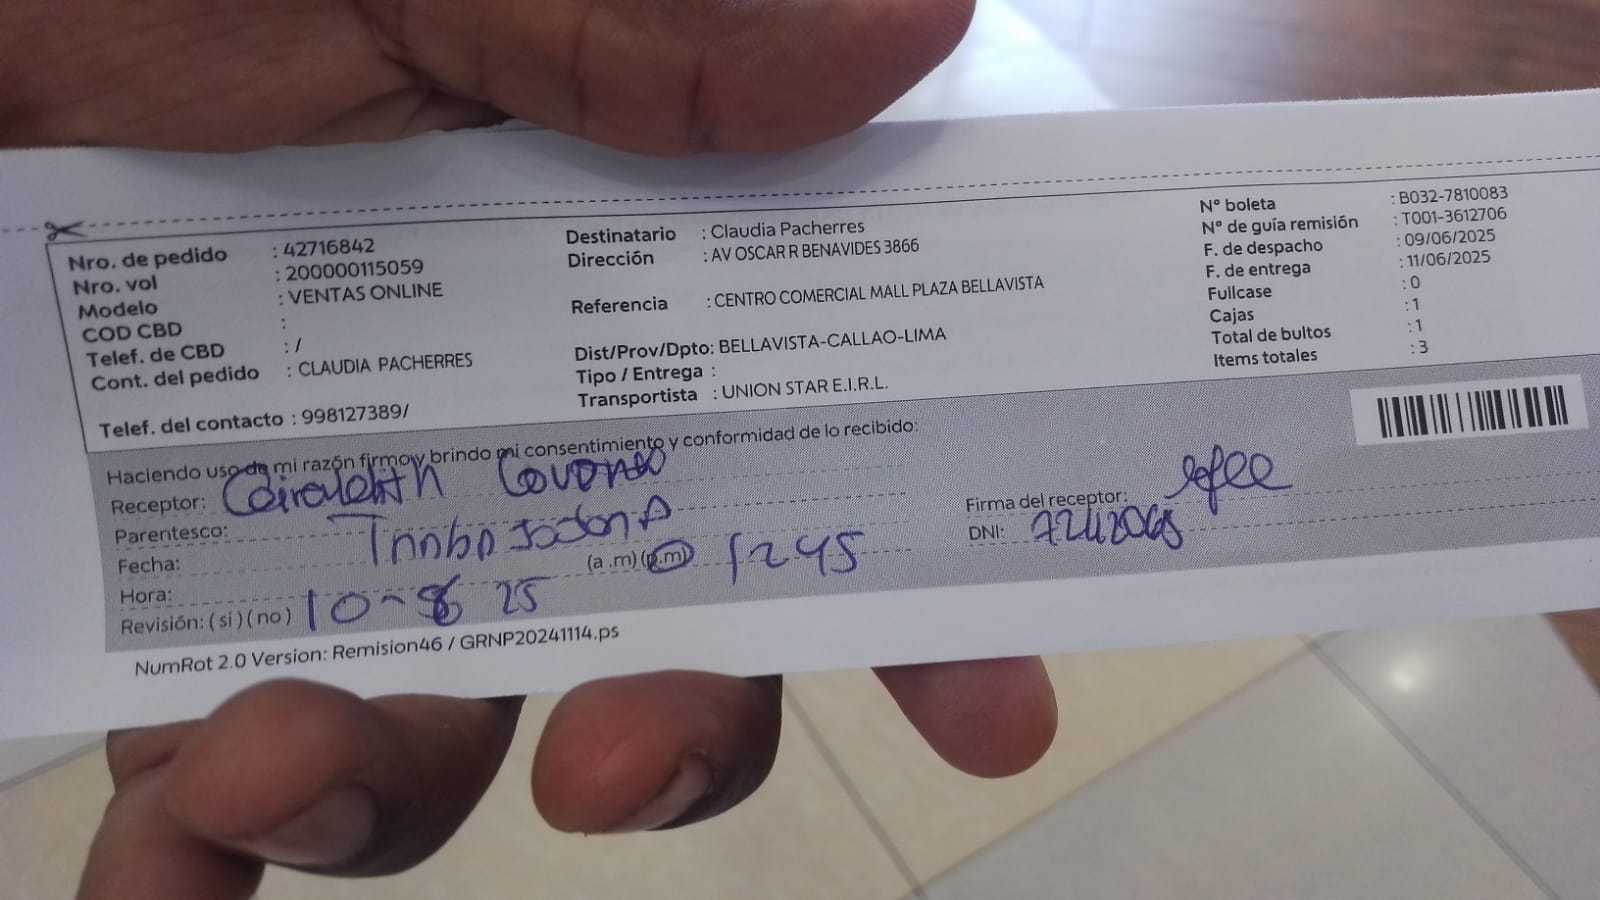 Nro. de pedido : 42716842
Nro. vol : 200000115059
Modelo : VENTAS ONLINE
COD CBD :
Telef. de CBD : /
Cont. del pedido : CLAUDIA PACHERRES
Telef. del contacto : 998127389/
Destinatario : Claudia Pacherres
Dirección : AV OSCAR R BENAVIDES 3866
Referencia : CENTRO COMERCIAL MALL PLAZA BELLAVISTA
Dist/Prov/Dpto: BELLAVISTA-CALLAO-LIMA
Tipo / Entrega :
Transportista : UNION STAR E.I.R.L.
N° boleta : B032-7810083
N° de guía remisión : T001-3612706
F. de despacho : 09/06/2025
F. de entrega : 11/06/2025
Fullcase : 0
Cajas : 1
Total de bultos : 1
Items totales : 3
Haciendo uso de mi razón firmo y brindo mi consentimiento y conformidad de lo recibido:
Receptor:
Parentesco:
Fecha:
Hora: (a .m) (p.m) 1245
Revisión: ( si ) ( no ) 10 - 25
Firma del receptor:
DNI:
NumRot 2.0 Version: Remision46 / GRNP20241114.ps